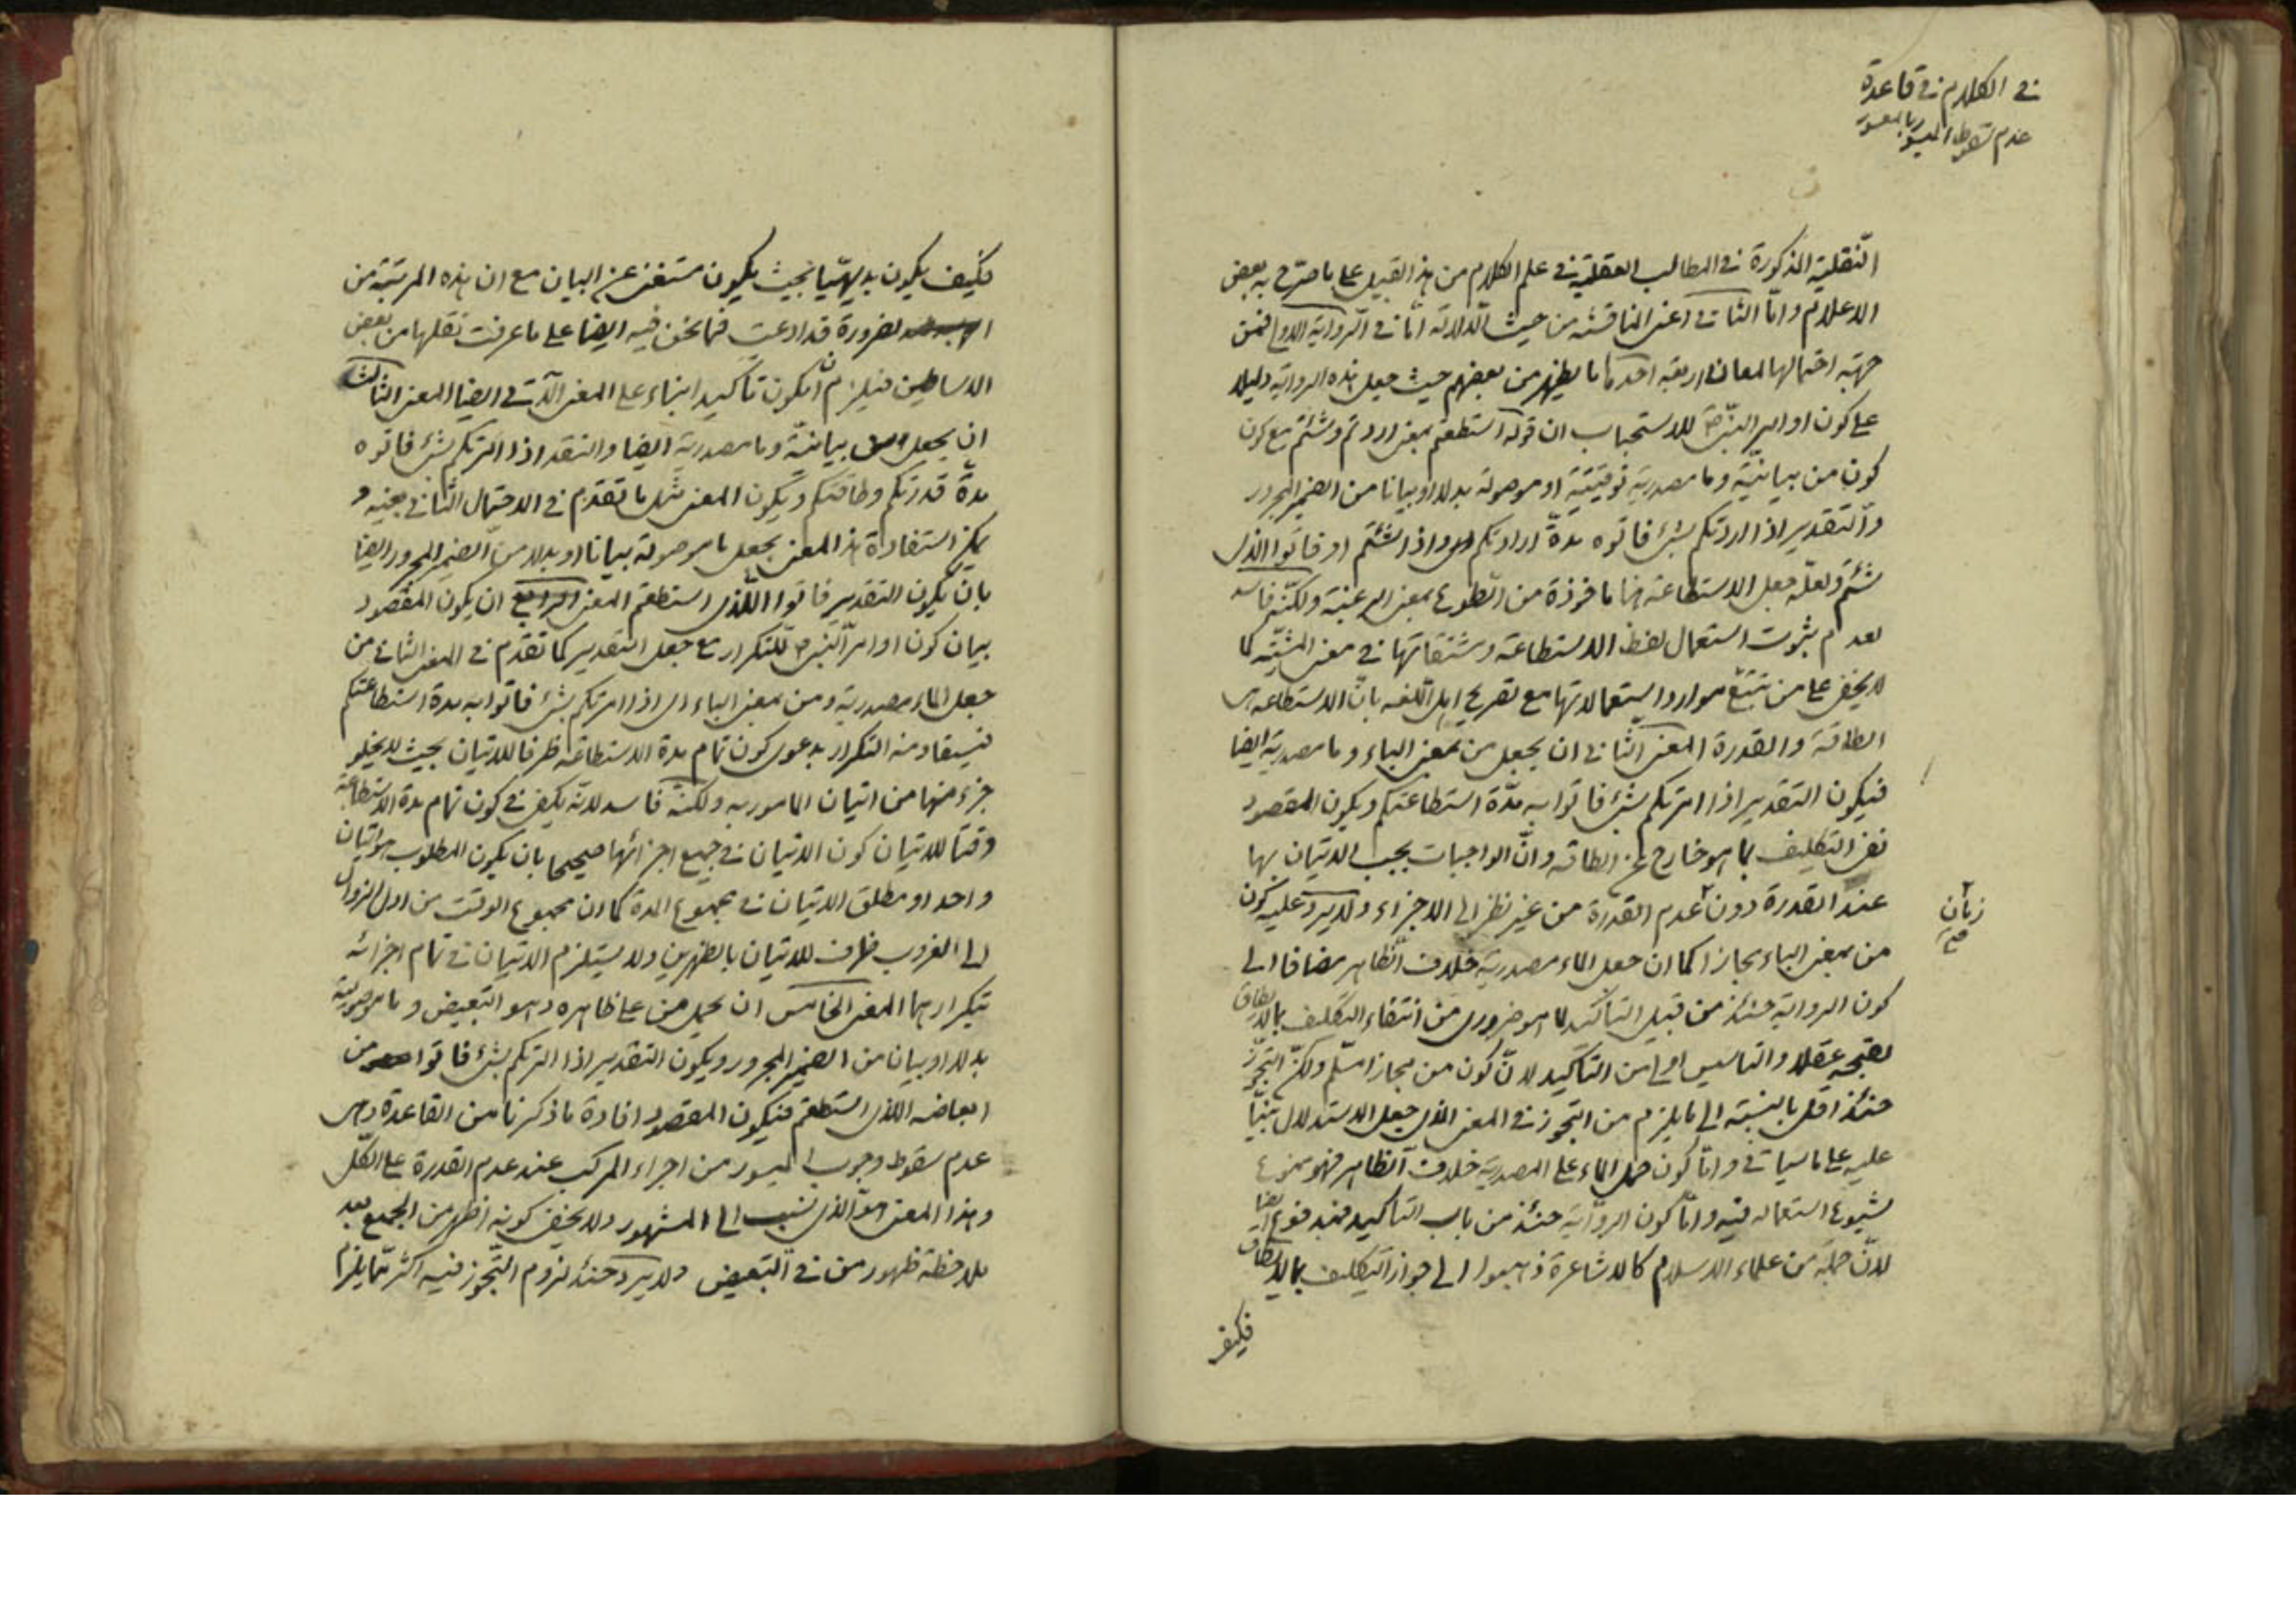 في الكلام في قاعدة
عدم سقوط الميسور بالمعسور
النقلية المذكورة في المطالب العقلية في علم الكلام من هذا القبيل على ما صرّح به بعض
الاعلام وامّا الثاني اعني المناقشة من حيث الدلالة امّا في الرواية الاولى فمن
جهة احتمالها لمعان اربعة احدها ما يظهر من بعضهم حيث جعل هذه الرواية دليلا
على كون اوامر النبي ص للاستحباب ان قوله استطعتم بمعنى اردتم وشئتم مع كون
كون من بيانيّة وما مصدرية توقيتية او موصولة بدلا او بيانا من الضمير المجرور
والتقدير اذا امرتكم بشئ فاتوه مدّة ارادتكم او اذا شئتم او فاتوا الذى
شئتم ولعلّه جعل الاستطاعة هنا ماخوذة من الطوع بمعنى الرغبة ولكنّه فاسد
لعدم ثبوت استعمال لفظ الاستطاعة ومشتقاتها في معنى المشيّة كما
لا يخفى على من تتبّع موارد استعمالاتها مع تصريح اهل اللغه بانّ الاستطاعة هى
الطاقة والقدرة المعنى الثاني ان يجعل من بمعنى الباء وما مصدرية ايضا
فيكون التقدير اذا امرتكم بشئ فاتوا به مدّة استطاعتكم ويكون المقصود
نفى التكليف بما هو خارج عن الطاقة وانّ الواجبات يجب الاتيان بها
عند القدرة دون عدم القدرة من غير نظر الى الاجزاء ولا يرد عليه كون
زمان
صح
من بمعنى الباء مجازا كما ان جعل الماء مصدرية خلاف الظاهر مضافا الى
كون الرواية حينئذ من قبيل التاكيد لما هو ضرورى من انتفاء التكليف بما لا يطاق
لقبحه عقلا والتاسيس اولى من التاكيد لانّ كون من مجازا مسلّم ولكنّ التجوّز
حينئذ اقل بالنسبة الى ما يلزم من التجوز في المعنى الذى جعل الاستدلال مبنيّا
عليه على ما سياتي وامّا كون حمل الماء على المصدرية خلاف الظاهر فهو ممنوع
لشيوع استعماله فيه وامّا كون الرواية حينئذ من باب التاكيد فمدفوع ايضا
لانّ جملة من علماء الاسلام كالاشاعرة ذهبوا الى جواز التكليف بما لا يطاق
فكيف
فكيف يكون بديهيّا بحيث يكون مستغن عن البيان مع ان هذه المرتبة من
الضرورة قد ادعيت فيما نحن فيه ايضا على ما عرفت نقلها من بعض
الاساطين فيلزم ان يكون تاكيدا بناء على المعنى الآتي ايضا المعنى الثالث
ان يجعل من بيانيّة وما مصدرية ايضا والتقدير اذا امرتكم بشئ فاتوه
مدّة قدرتكم وطاقتكم ويكون المعنى مثل ما تقدم في الاحتمال الثاني بعينه و
يمكن استفادة هذا المعنى بجعل ما موصولة بيانا او بدلا من الضمير المجرور ايضا
بان يكون التقدير فاتوا الذى استطعتم المعنى الرابع ان يكون المقصود
بيان كون اوامر النبي ص للتكرار مع جعل التقدير كما تقدم في المعنى الثاني من
جعل الماء مصدرية ومن بمعنى الباء اى اذا امرتكم بشئ فاتوا به مدة استطاعتكم
فيستفاد منه التكرار بدعوى كون تمام مدة الاستطاعة ظرفا للاتيان بحيث لا يخلو
جزء منها من اتيان المامور به ولكنّه فاسد لانّه يكفى في كون تمام مدة الاستطاعة
وقتا للاتيان كون الاتيان في جميع اجزائها صحيحا بان يكون المطلوب هو اتيان
واحد او مطلق الاتيان في مجموع المدة كما ان مجموع الوقت من اول الزوال
الى الغروب ظرف للاتيان بالظهرين ولا يستلزم الاتيان في تمام اجزائه
بتكرارهما المعنى الخامس ان يحمل من على ظاهره وهو التبعيض وما موصولة
بدلا او بيان من الضمير المجرور ويكون التقدير اذا امرتكم بشئ فاتوا من
ابعاضه الذى استطعتم فيكون المقصود افادة ما ذكرنا من القاعدة وهى
عدم سقوط وجوب الميسور من اجزاء المركب عند عدم القدرة على الكلّ
وهذا المعنى هو الذى نسب الى المشهور ولا يخفى كونه اظهر من الجميع بعد
ملاحظة ظهور من في التبعيض ولا يرد حينئذ لزوم التّجوز فيه اكثر ممّا يلزم